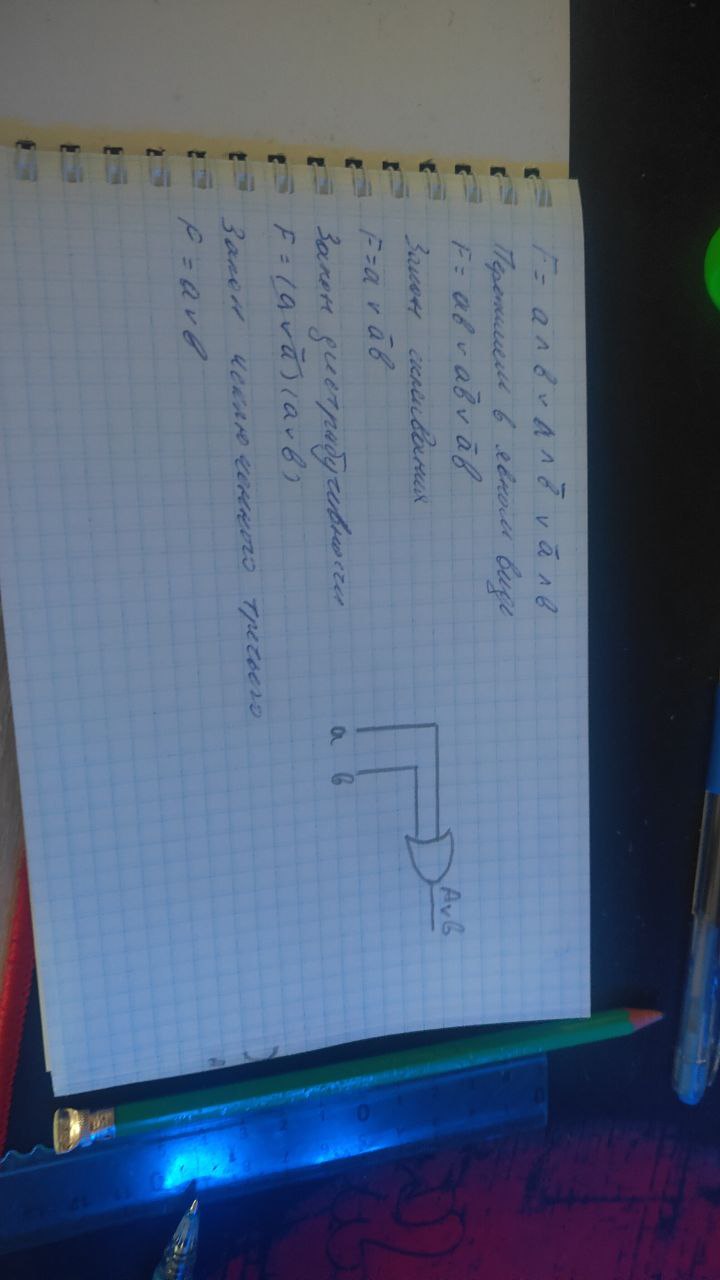 F = a ∧ b ∨ a ∧ b̄ ∨ ā ∧ b
Перепишем в явном виде
F = ab ∨ ab̄ ∨ āb
Закон склеивания
F = a ∨ āb
Закон дистрибутивности
F = (a ∨ ā)(a ∨ b)
Закон исключенного третьего
F = a ∨ b
A∨B
a
b